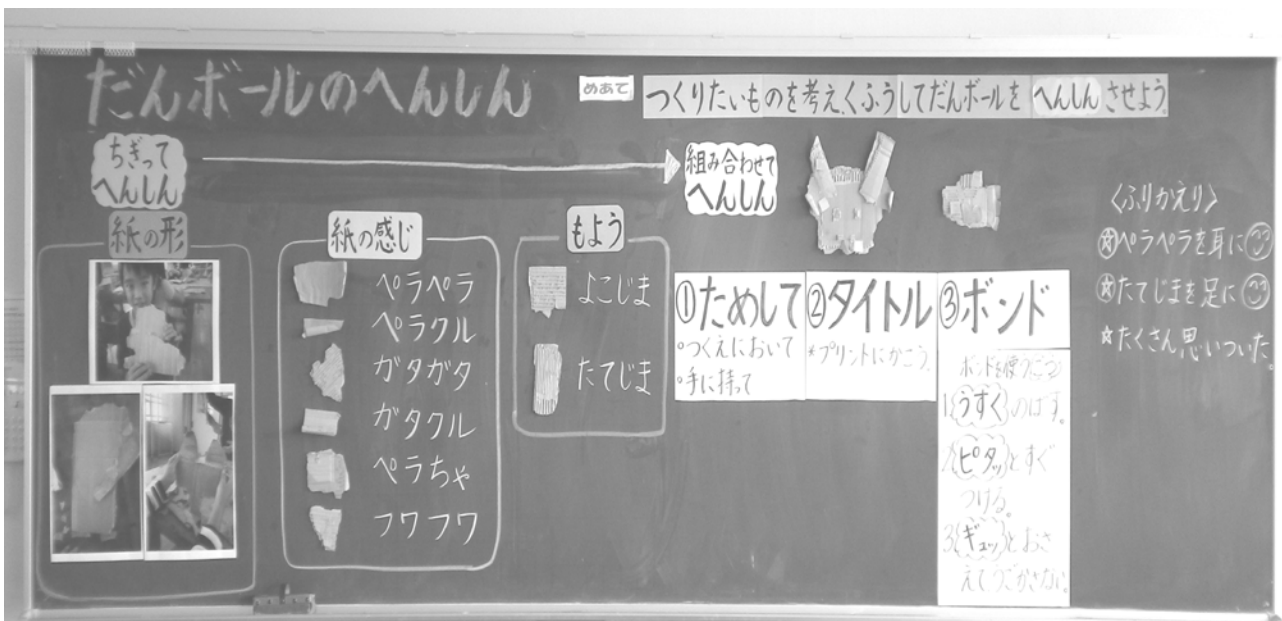 だんボールのへんしん
めあて
つくりたいものを考え、くふうしてだんボールを へんしん させよう。
ちぎって
へんしん
組み合わせて
へんしん
紙の形
紙の感じ
ペラペラ
ペラクル
ガタガタ
ガタクル
ペラちゃ
フワフワ
もよう
よこじま
たてじま
①ためして
○つくえにおいて
○手に持って
②タイトル
*プリントにかこう。
③ボンド
ボンドを使うコツ
1 うすく のばす。
2 ピタッ とすぐ
つける。
3 ギュッ とおさ
えてうごかさない。
〈ふりかえり〉
☆ペラペラを耳に
☆たてじまを足に
☆たくさん思いついた。